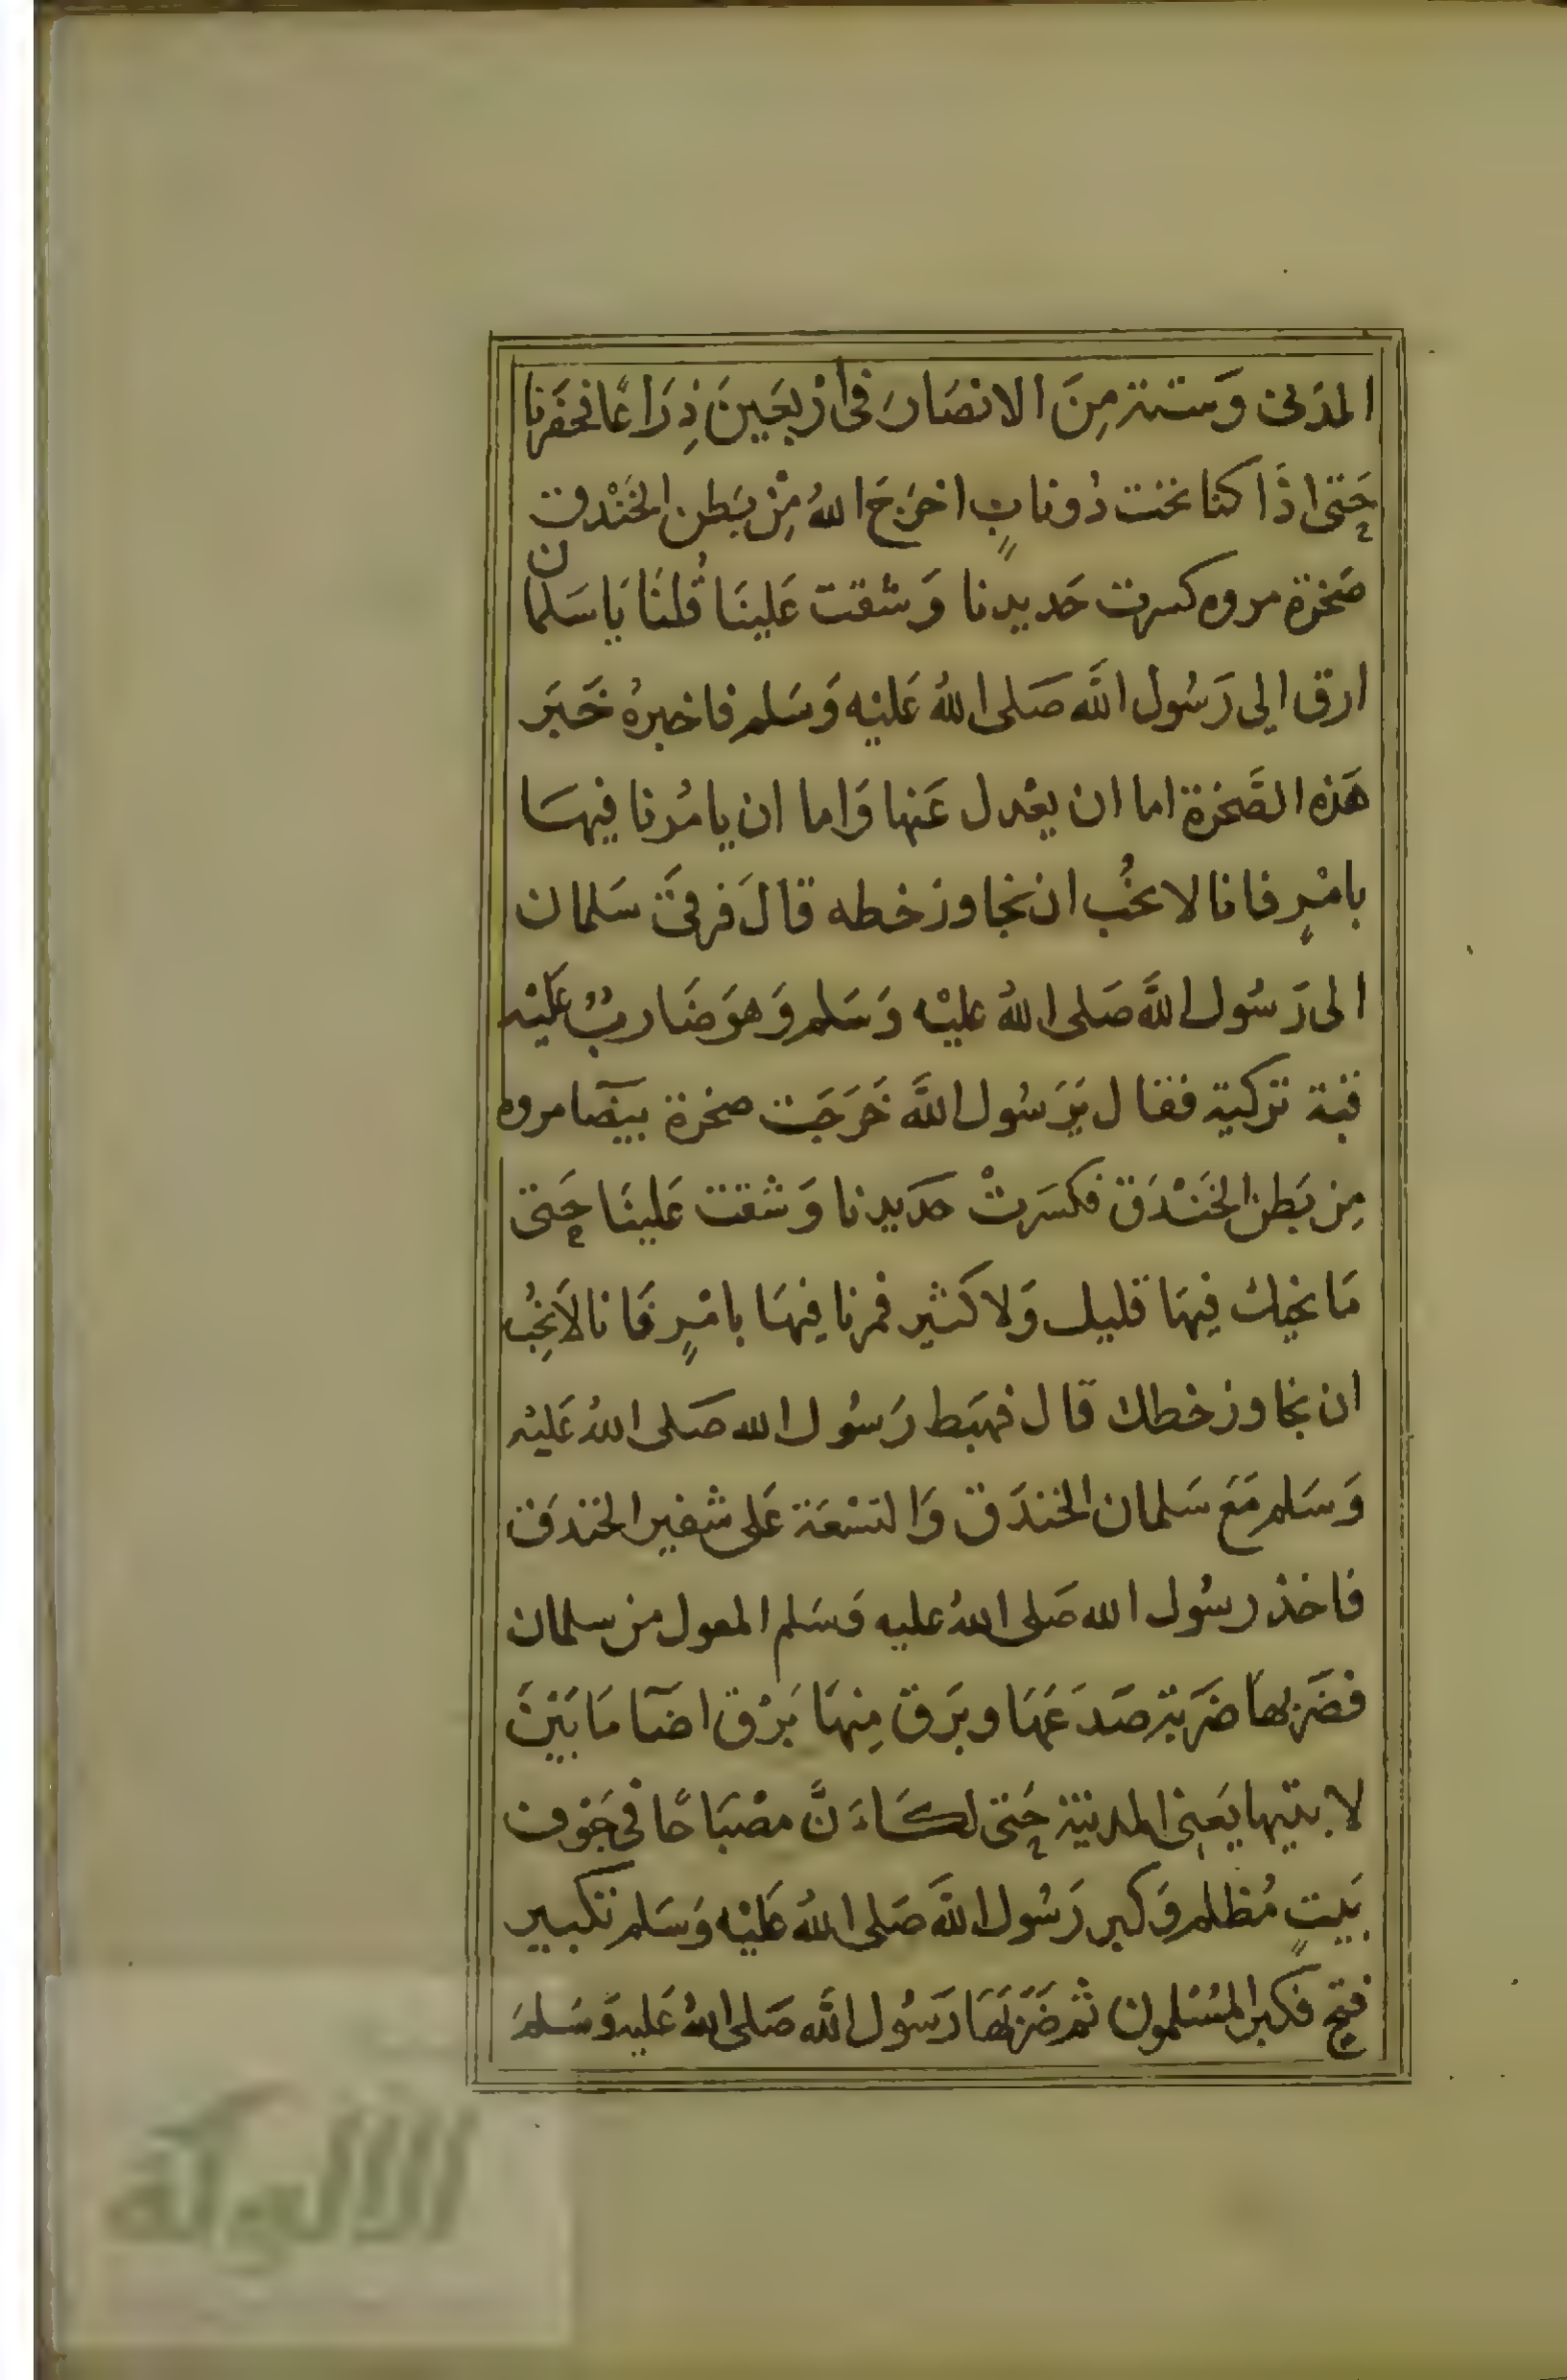 المدنى وَستة مِنَ الانصَارَ فى ارْبعَينَ ذِرَاعًا فحفَرنا
حَتى اذَا كنا تحت ذُونابٍ اخرَجَ اللهُ مِنْ بَطن الخَنْدق
صَخرَة مروه كسرت حَديدنا وَشقت عَلينَا قُلنَا يَا سَلمان
ارق الى رَسُول اللَّه صَلى اللهُ عَليْه وَسَلم فاخبرهُ خَبَر
هَذه الصَّخرَة اما ان يعْدل عَنها وَاما ان يامُرنا فيهَا
بامْرٍ فانا لا نحُب ان نجاوز خطه قالَ فَرقىَ سَلمان
الى رَسُول اللَّه صَلى اللهُ عليْه وَسَلم وَهوَ ضَاربٌ عَليْه
قبة تركية فقال يَرَسُول اللَّه خَرَجَت صخرة بيضَآ مروه
مِن بَطن الخَنْدَق فكسَرتْ حَدَيدنا وَشقت عَلينَا حَتى
مَا نحيك فيهَا قليل وَلا كَثير فمرنا فيهَا بامْرٍ فَانا لَا نحِبُ
ان نجاوز خطك قال فهبَط رَسُول الله صَلى اللهُ عَليْه
وَسَلم مَعَ سَلمان الخندَق وَالتسْعَة عَلى شفير الخندَق
فاخذ رسُول الله صَلى اللهُ عليه وَسَلم المعول من سلمان
فضَربهَا ضَربة صَدَ عَهَا وبَرَق مِنهَا بَرْق اضَآ مَا بَيْنَ
لا بتيها يَعنِى المدنيَة حَتى لكَاءَ نَّ مصْبَاحًا فى جَوف
بَيتٍ مُظلم وَكبر رَسُول اللَّه صَلى اللهُ عَليْه وَسَلم تكبير
فتح فكبر المسْلمون ثم ضَرَبهَا رَسُول اللَّه صَلى اللهُ عَليه وَسَلمَ
الألوكة